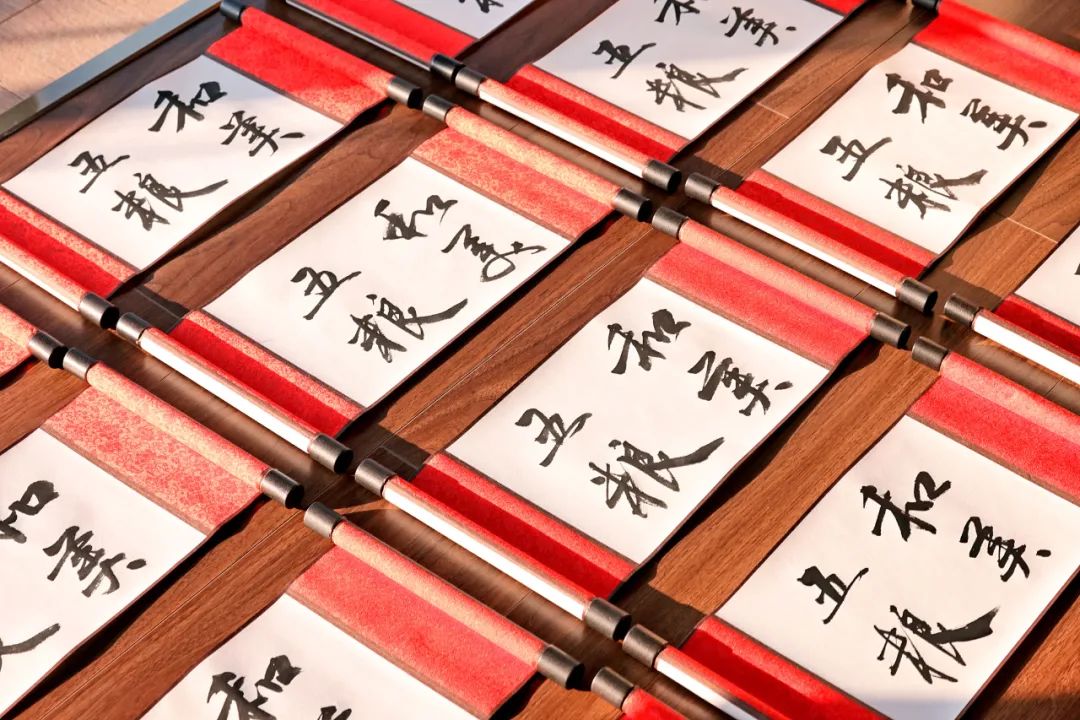 和美
五粮
和美
五粮
和美
五粮
和美
五粮
和美
五粮
和美
五粮
和美
和